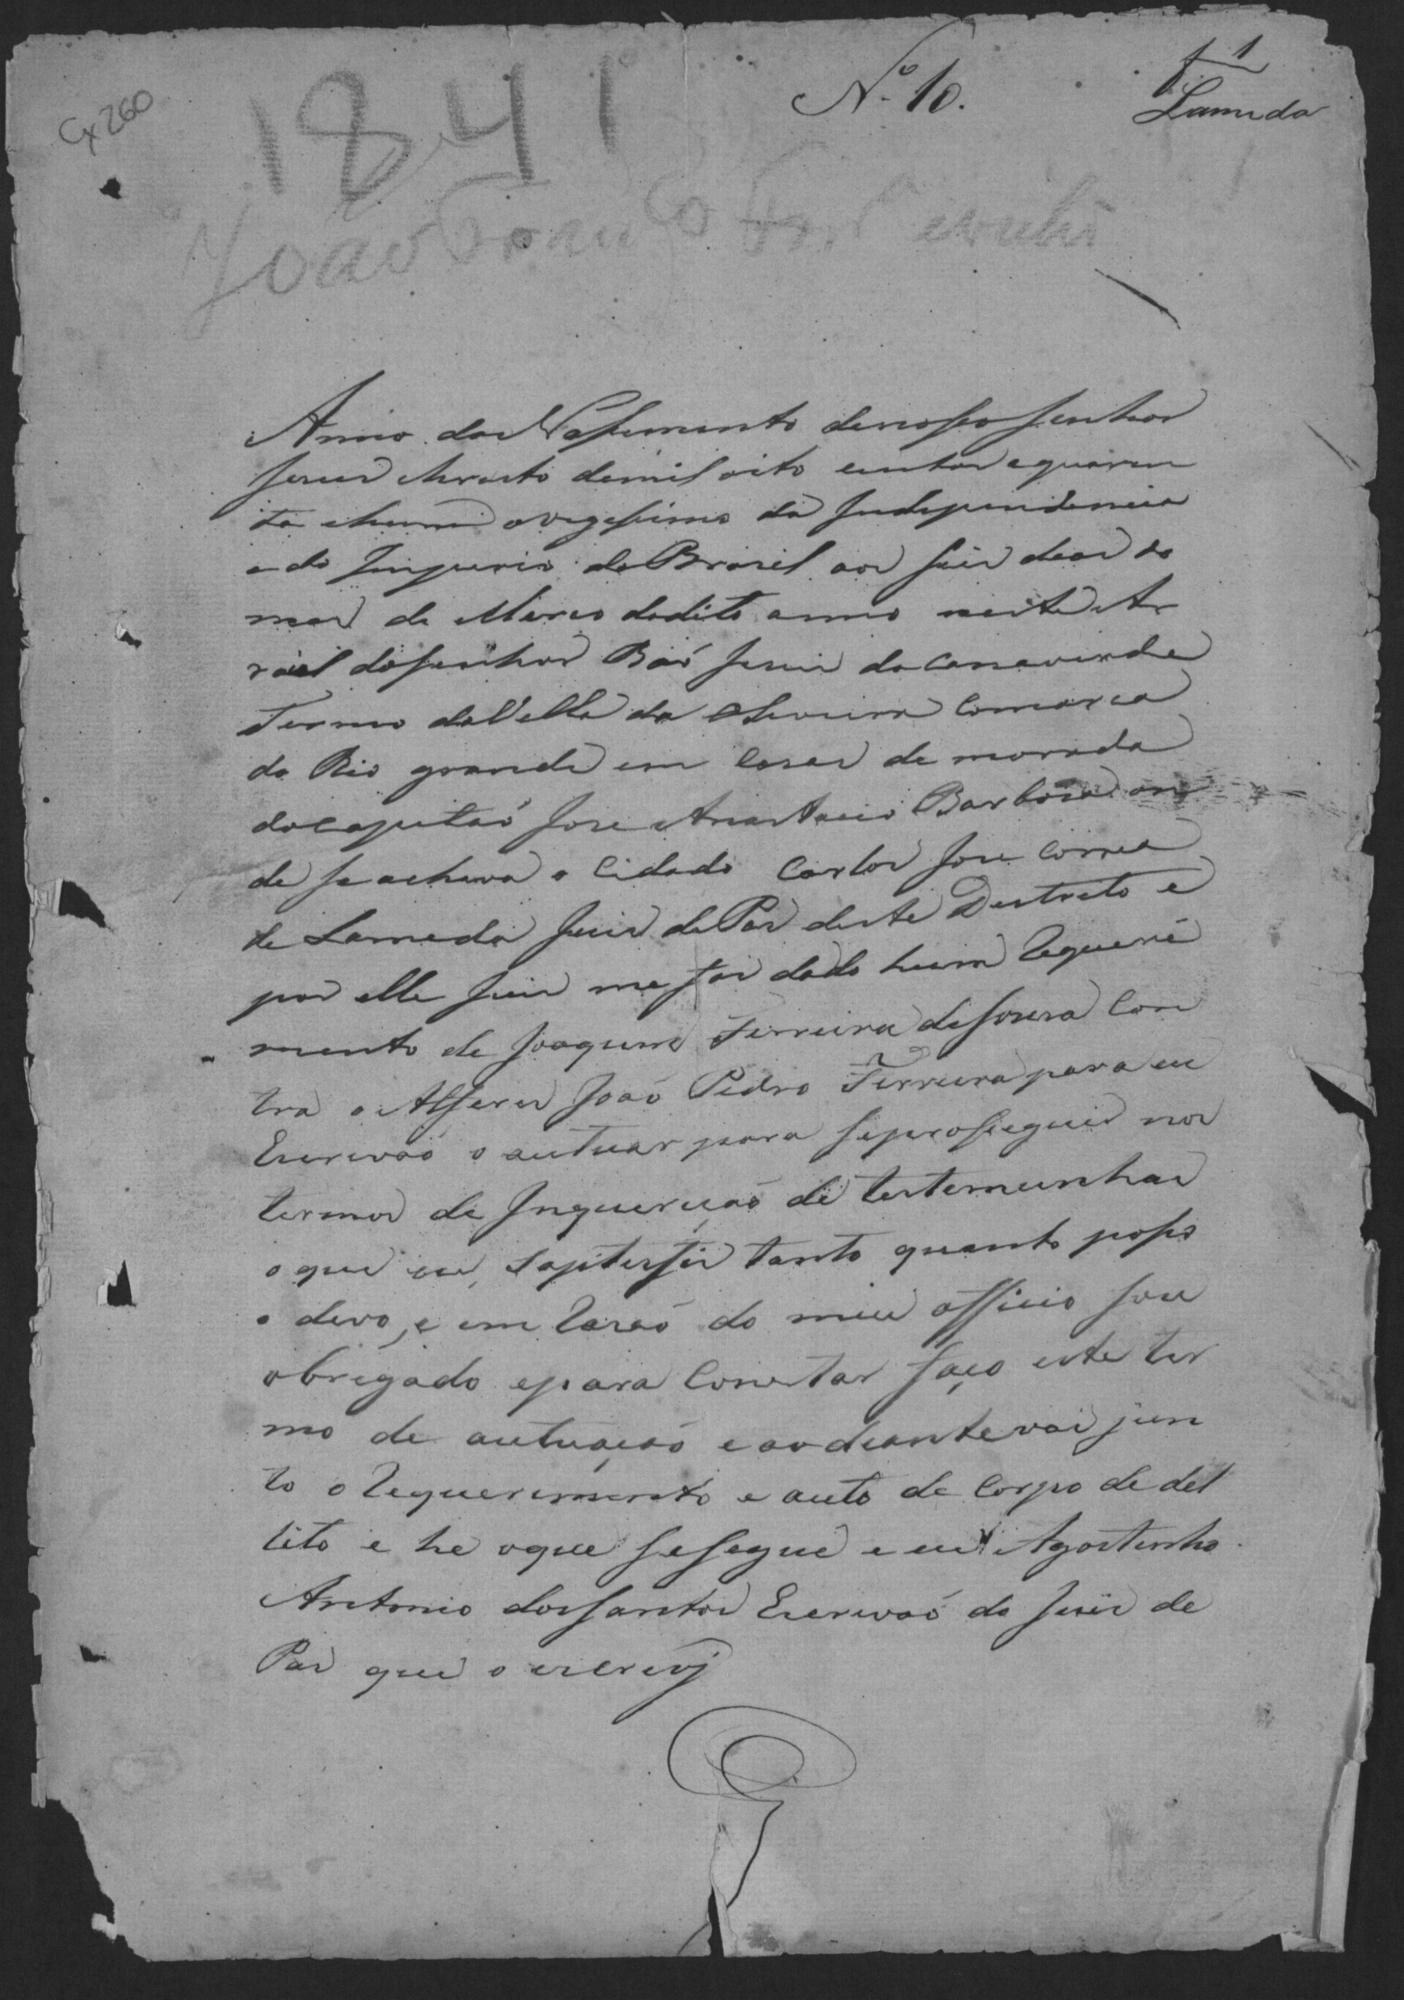 Cx 260
1841
Nº 10.
f 1
Lameda
João
Anno do Nassimento denosso senhor
Jesus christo demil oito centos e quaren
ta ehum ovegessimo da Independencia
e do Imperio do Brasil aos seis dias do
mes de Março dodito anno neste Ar
raial dosenhor Bão Jesus da canaverde
Termo da Villa da oliveira Comarca
do Rio grande em casas de morada
docapitaó Jose Anastacio Barbosa on
de se achava o Cidadó Carlos Jose Correa
de Lameda Juis de Pas deste Destrito e
por elle Juis me foi dado hum Requeré
mento de Joaquim Ferreira desousa Con
tra o Alferes Joaó Pedro Ferreira para eu
Escrivaó o autuar para seproseguir nos
termos de Inquericaó de testemunhas
o que eu, satisfis tanto quanto posso
e devo, e em rasaó do meu officio sou
obrigado epara Constar faço este ter
mo de autuacaó e aodiante vai jun
to o Requerimento e auto de Corpo de del
lito e he oque sesegue e eu Agostinho
Antonio dossantos Escrivaó do Juis de
Pas que o escrevj